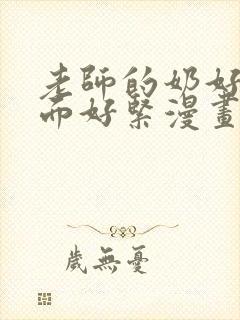 老師的奶好
而好緊漫畫
歲無憂